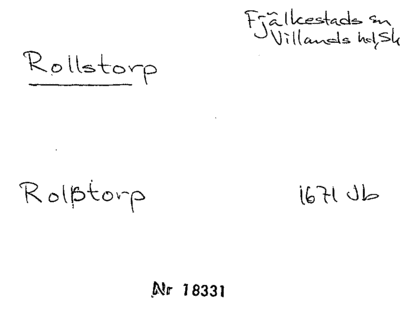 Fjälkestads sn
Villands hd, Sk
Rollstorp
Rolßtorp 1671 Jb
Nr 18331